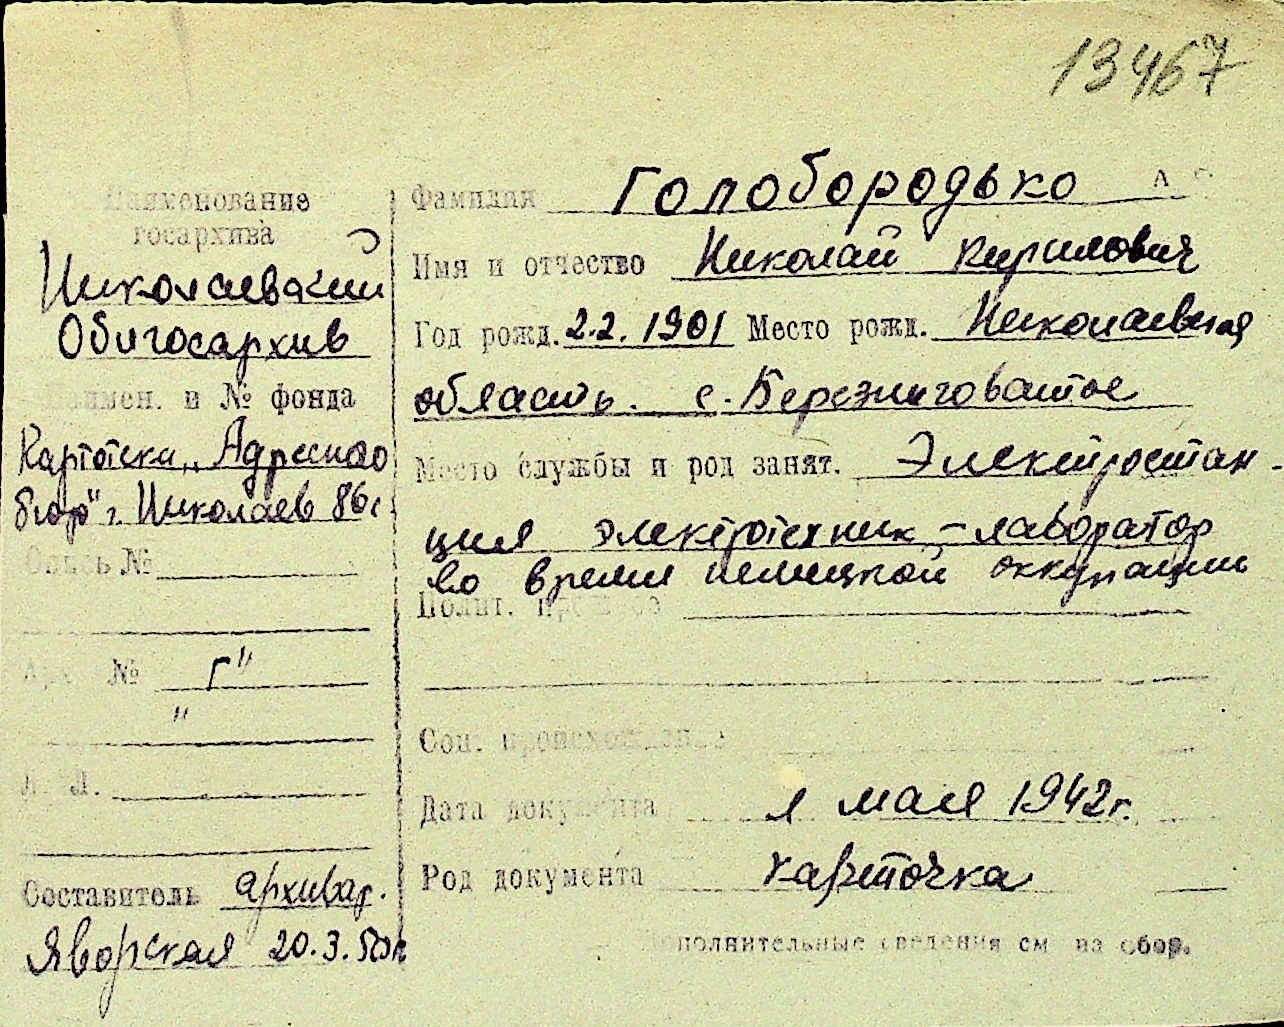 13467
Наименование
госархива
Николаевский
Облгосархив
Наимен. и № фонда
Картотека „Адресного
бюро" г. Николаев
Опись №
Арх. № Г"
"
Л.
Составитель архивар.
Яворская 20.3.50г
Фамилия Голобородько
Имя и отчество Николай Кирилович
Год рожд. 2.2.1901 Место рожд. Николаевская
область. с. Березниговатое
Место службы и род занят. Электростан-
ция электротехник - лаборатор
во время немецкой оккупации
Полит. процесс
Соц. происхождение
Дата документа 1 мая 1942г.
Род документа карточка
Дополнительные сведения см на обор.